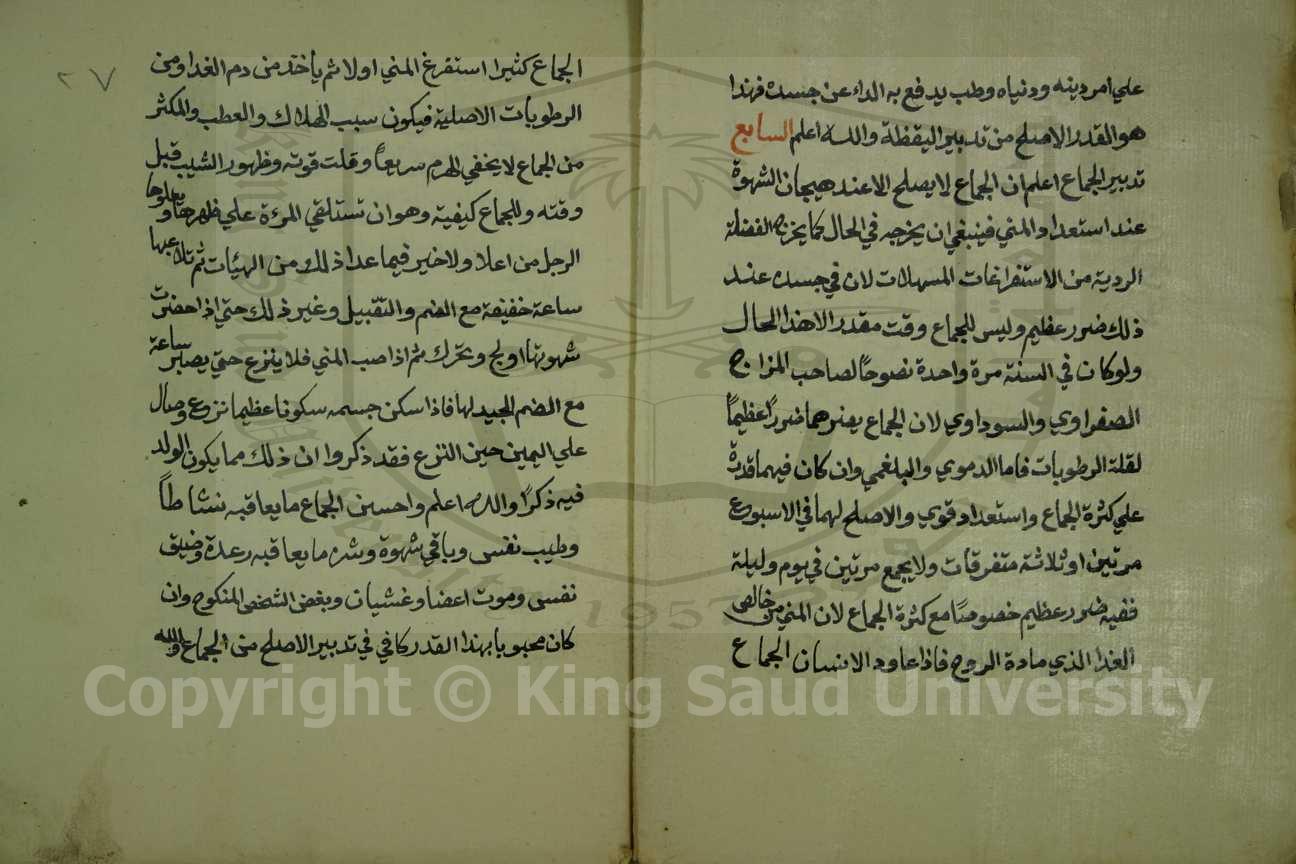 علي امر دينه ودنياه وطب يدفع به الداء عن جسده فهذا
هو القدر الاصلح من تدبير اليقظة والله اعلم السابع
تدبير الجماع اعلم ان الجماع لا يصلح الا عند هيجان الشهوة
عند استعداد المني فينبغي ان يخرجه في الحال كما يخرج الفضلة
الردية من الاستفراغات المسهلات لان في جسده عند
ذلك ضرر عظيم وليس للجماع وقت مقدر الا هذا الحال
ولو كان في السنة مرة واحدة نصوحًا لصاحب المزاج
الصفراوي والسوداوي لان الجماع يضرهما ضررًا عظيمًا
لقلة الرطوبات فاما الدموي والبلغمي وان كان فيهما قدرة
علي كثرة الجماع واستعداد قوي والاصلح لهما في الاسبوع
مرتين او ثلاثة متفرقات ولا يجمع مرتين في يوم وليلة
ففيه ضرر عظيم خصوصًا مع كثرة الجماع لان المني من خالص
الغدا الذي مادة الروح فاذا عاود الانسان الجماع
٢٧
الجماع كثيرا استفرغ المني اولا ثم ياخذ من دم الغدا ومن
الرطوبات الاصلية فيكون سبب الهلاك والعطب والمكثر
من الجماع لا يخفي الهرم سريعًا وقلت قوته وظهور الشيب قبل
وقته وللجماع كيفية وهو ان تستلقي المرءة علي ظهرها ويعلوها
الرجل من اعلا ولا خير فيما عدا ذلك من الهيئات ثم تلاعبها
ساعة خفيفة مع الضم والتقبيل وغير ذلك حتي اذا حضرت
شهوتها اولج وتحرك ثم اذا صب المني فلا ينزع حتي يصبر ساعة
مع الضم الجيد لها فاذا سكن جسمه سكونا عظيما نزع ومال
علي اليمين حين النزع فقد ذكروا ان ذلك مما يكون الولد
فيه ذكرًا والله اعلم واحسن الجماع ما يعاقبه نشاطًا
وطيب نفس وباقي شهوة وشره ما يعاقبه رعدة وضيق
نفس وموت اعضا وغشيان وبغض الشخص المنكوح وان
كان محبوبا بهذا القدر كافي في تدبير الاصلح من الجماع والله
Copyright © King Saud University
1957